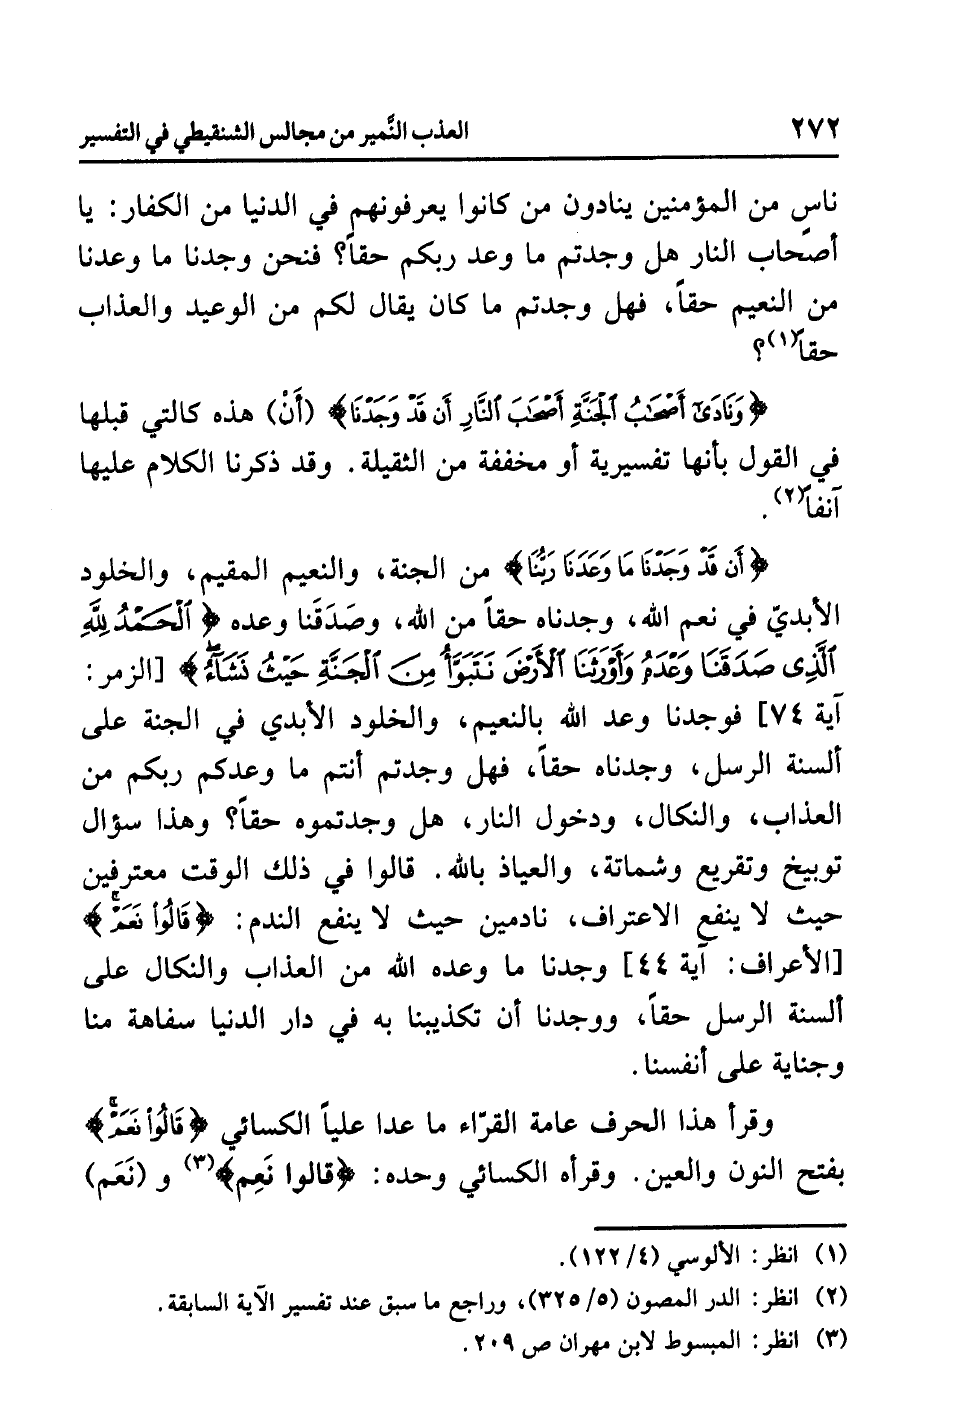 ٢٧٢ العذب النَّمير من مجالس الشنقيطي في التفسير
ناس من المؤمنين ينادون من كانوا يعرفونهم في الدنيا من الكفار: يا
أصحاب النار هل وجدتم ما وعد ربكم حقاً؟ فنحن وجدنا ما وعدنا
من النعيم حقاً، فهل وجدتم ما كان يقال لكم من الوعيد والعذاب
حقاً(١)؟
﴿وَنَادَىٰٓ أَصْحَٰبُ ٱلْجَنَّةِ أَصْحَٰبَ ٱلنَّارِ أَن قَدْ وَجَدْنَا﴾ (أَنْ) هذه كالتي قبلها
في القول بأنها تفسيرية أو مخففة من الثقيلة. وقد ذكرنا الكلام عليها
آنفاً(٢).
﴿أَن قَدْ وَجَدْنَا مَا وَعَدَنَا رَبُّنَا﴾ من الجنة، والنعيم المقيم، والخلود
الأبديّ في نعم الله، وجدناه حقاً من الله، وصَدَقَنا وعده ﴿ٱلْحَمْدُ لِلَّهِ
ٱلَّذِى صَدَقَنَا وَعْدَهُۥ وَأَوْرَثَنَا ٱلْأَرْضَ نَتَبَوَّأُ مِنَ ٱلْجَنَّةِ حَيْثُ نَشَآءُۖ﴾ [الزمر:
آية ٧٤] فوجدنا وعد الله بالنعيم، والخلود الأبدي في الجنة على
ألسنة الرسل، وجدناه حقاً، فهل وجدتم أنتم ما وعدكم ربكم من
العذاب، والنكال، ودخول النار، هل وجدتموه حقاً؟ وهذا سؤال
توبيخ وتقريع وشماتة، والعياذ بالله. قالوا في ذلك الوقت معترفين
حيث لا ينفع الاعتراف، نادمين حيث لا ينفع الندم: ﴿قَالُوا۟ نَعَمْۚ﴾
[الأعراف: آية ٤٤] وجدنا ما وعده الله من العذاب والنكال على
ألسنة الرسل حقاً، ووجدنا أن تكذيبنا به في دار الدنيا سفاهة منا
وجناية على أنفسنا.
وقرأ هذا الحرف عامة القرّاء ما عدا علياً الكسائي ﴿قَالُوا۟ نَعَمْۚ﴾
بفتح النون والعين. وقرأه الكسائي وحده: ﴿قالوا نَعِم﴾(٣) و (نَعَم)
(١) انظر: الألوسي (٤/ ١٢٢).
(٢) انظر: الدر المصون (٥/ ٣٢٥)، وراجع ما سبق عند تفسير الآية السابقة.
(٣) انظر: المبسوط لابن مهران ص ٢٠٩.